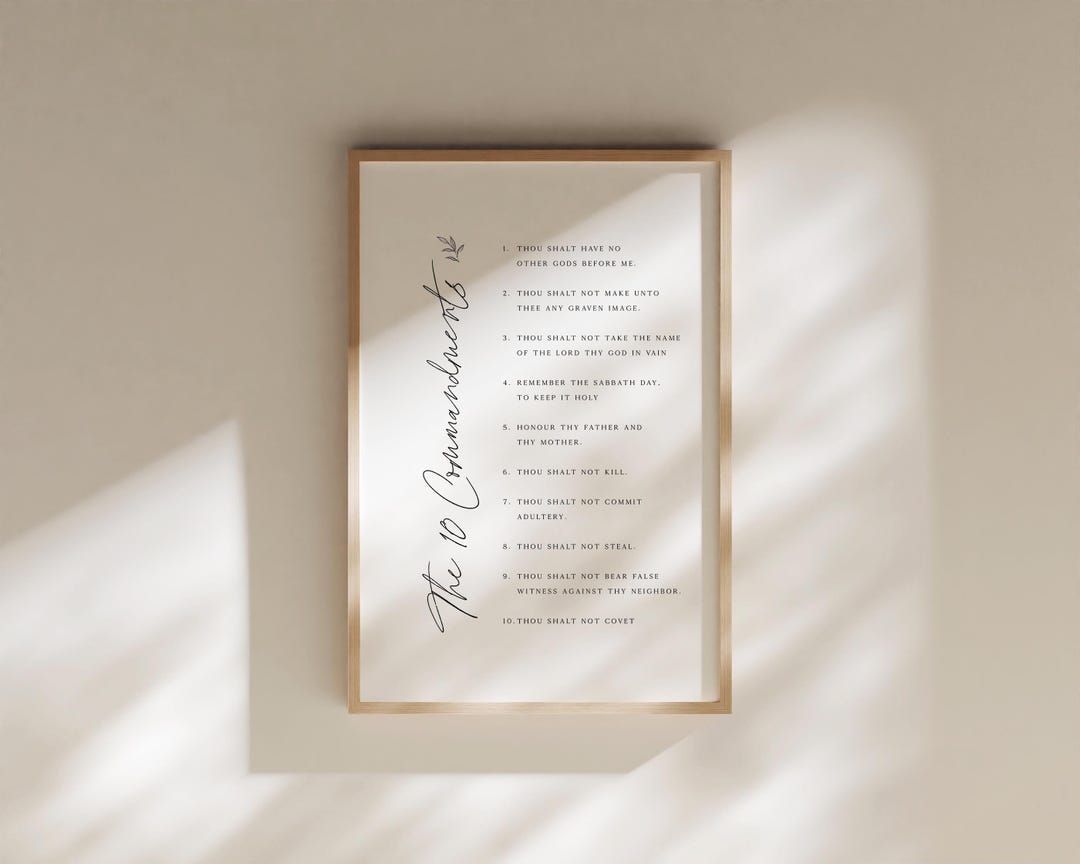 The 10 Commandments
1. THOU SHALT HAVE NO
OTHER GODS BEFORE ME.
2. THOU SHALT NOT MAKE UNTO
THEE ANY GRAVEN IMAGE.
3. THOU SHALT NOT TAKE THE NAME
OF THE LORD THY GOD IN VAIN
4. REMEMBER THE SABBATH DAY,
TO KEEP IT HOLY
5. HONOUR THY FATHER AND
THY MOTHER.
6. THOU SHALT NOT KILL.
7. THOU SHALT NOT COMMIT
ADULTERY.
8. THOU SHALT NOT STEAL.
9. THOU SHALT NOT BEAR FALSE
WITNESS AGAINST THY NEIGHBOR.
10. THOU SHALT NOT COVET